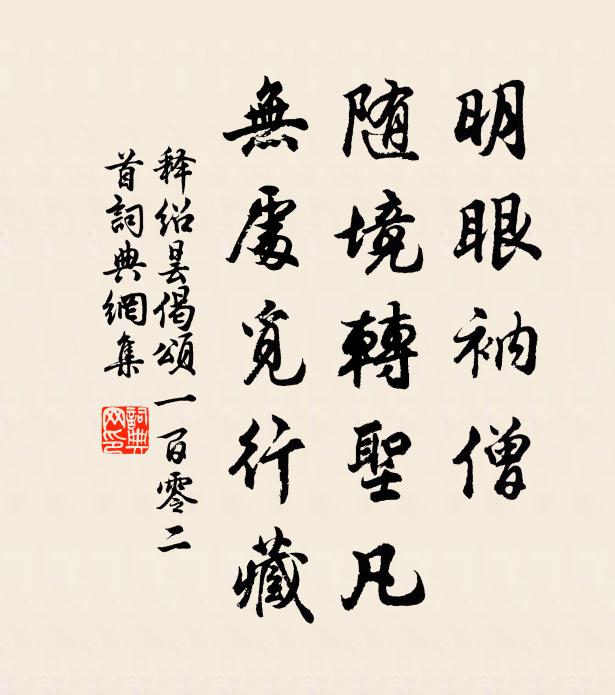 明眼衲僧
随境轉聖凡
無處覓行藏
释绍昙偈頌一百零二
首詞典網集
詞典网印